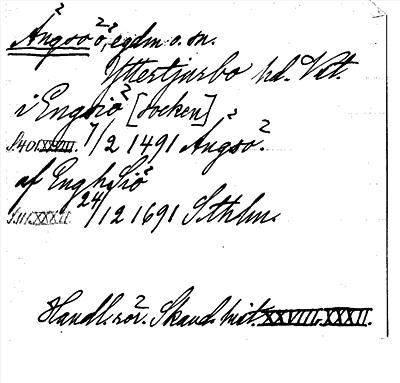 Ängsö ö, egdm o. sn.
Yttertjurbo hd. Vst.
i Engsiö [socken]
S. 401 XXVIII. 7/2 1491 Ängsö.
af Engh Siö
S. 111. XXXII. 24/12 1691 Sthlm.
Handl. rör. Skand. hist. XXVIII. XXXII.